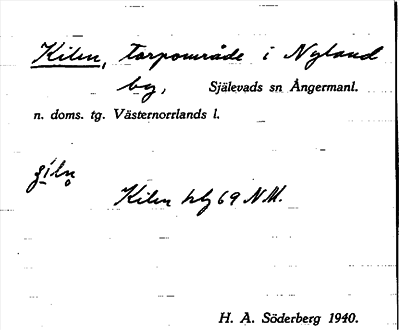 Kilen, torpområde i Nyland
by, Själevads sn Ångermanl.
n. doms. tg. Västernorrlands l.
Kilen hbl 69 NM.
H. A. Söderberg 1940.